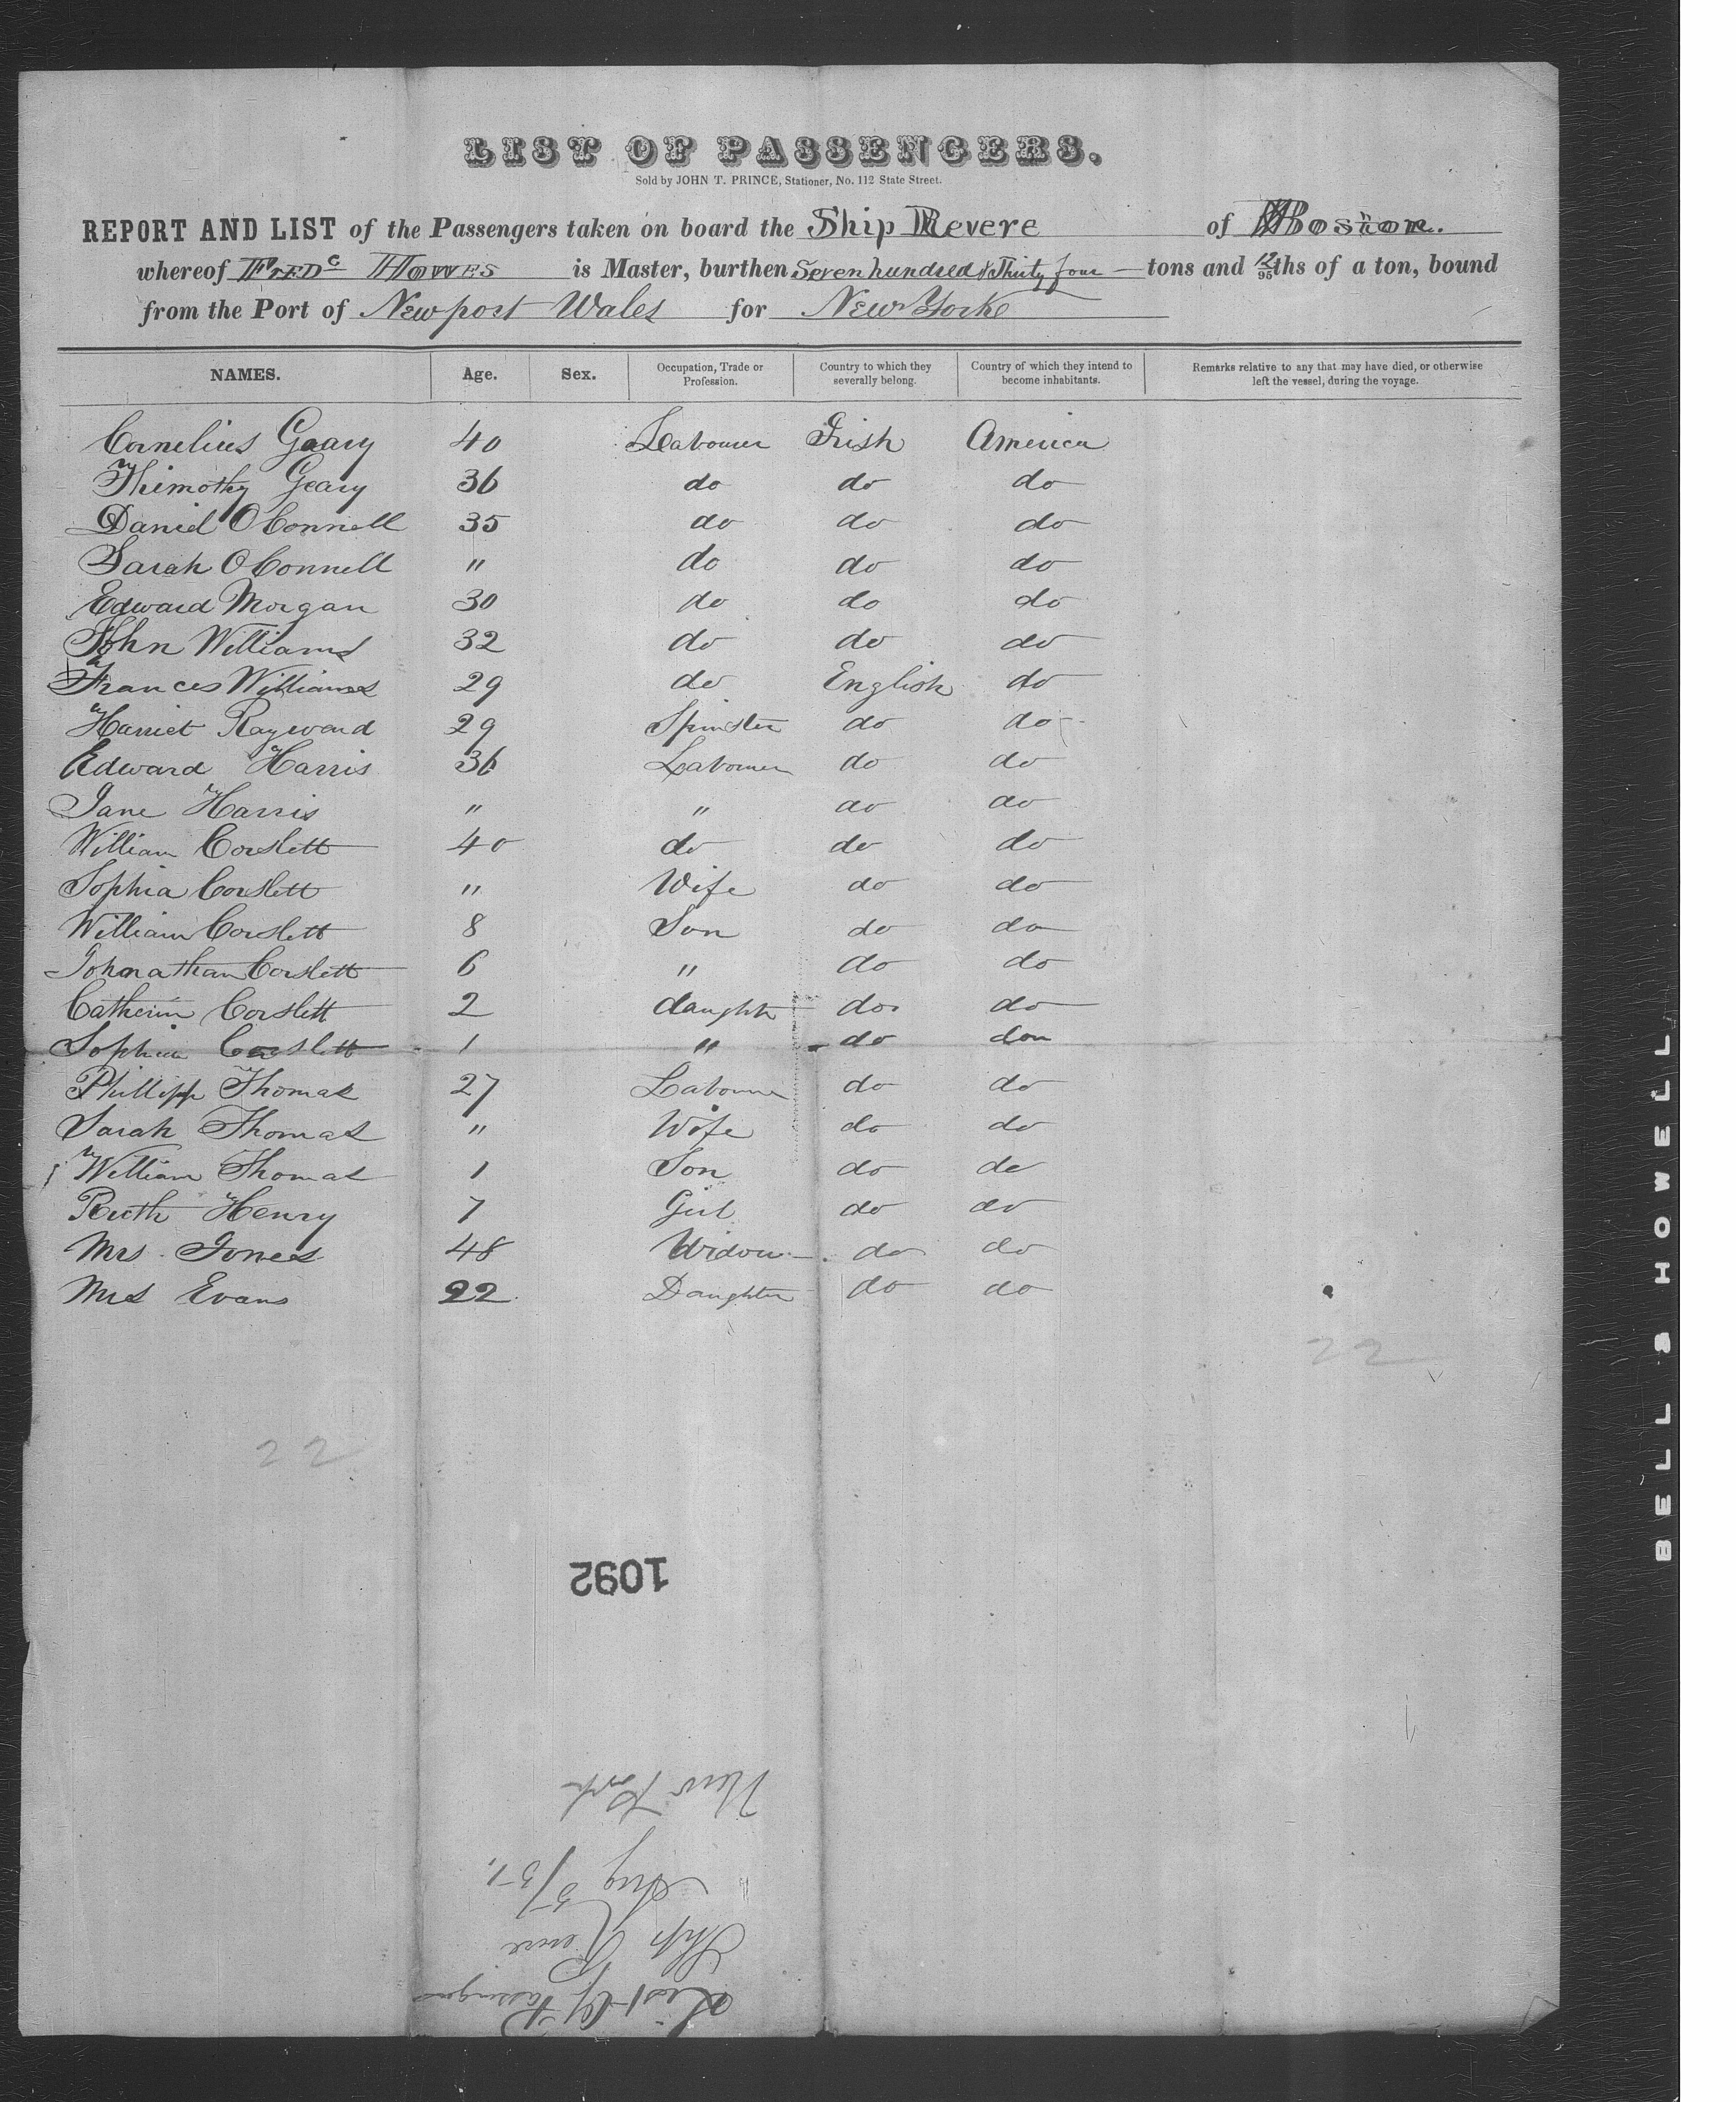 LIST OF PASSENGERS.
Sold by JOHN T. PRINCE, Stationer, No. 112 State Street.
REPORT AND LIST of the Passengers taken on board the Ship Revere of Boston.
whereof Fredc Howes is Master, burthen Seven hundred & Thirty four tons and 12/95ths of a ton, bound
from the Port of Newport Wales for New Yorke
NAMES. Age. Sex. Occupation, Trade or Profession. Country to which they severally belong. Country of which they intend to become inhabitants. Remarks relative to any that may have died, or otherwise left the vessel, during the voyage.
Cornelius Geary 40 Labourer Irish America
Thimothy Geary 36 do do do
Daniel OConnell 35 do do do
Sarah OConnell " do do do
Edward Morgan 30 do do do
John Williams 32 do do do
Frances Williams 29 do English do
Harriet Rayward 29 Spinster do do
Edward Harris 36 Labourer do do
Jane Harris " " do do
William Corslett 40 do do do
Sophia Corslett " Wife do do
William Corslett 8 Son do do
Johnathan Corslett 6 " do do
Catherin Corslett 2 daughtr do do
Sophia Corslett 1 " do do
Phillipp Thomas 27 Labourer do do
Sarah Thomas " Wife do do
William Thomas 1 Son do do
Ruth Henry 7 Girl do do
Mrs. Jones 48 Widow do do
Mrs Evans 22 Daughter do do
22
22
1092
List of Passengers
Ship Revere
Aug 5/51.
New York
BELL & HOWELL